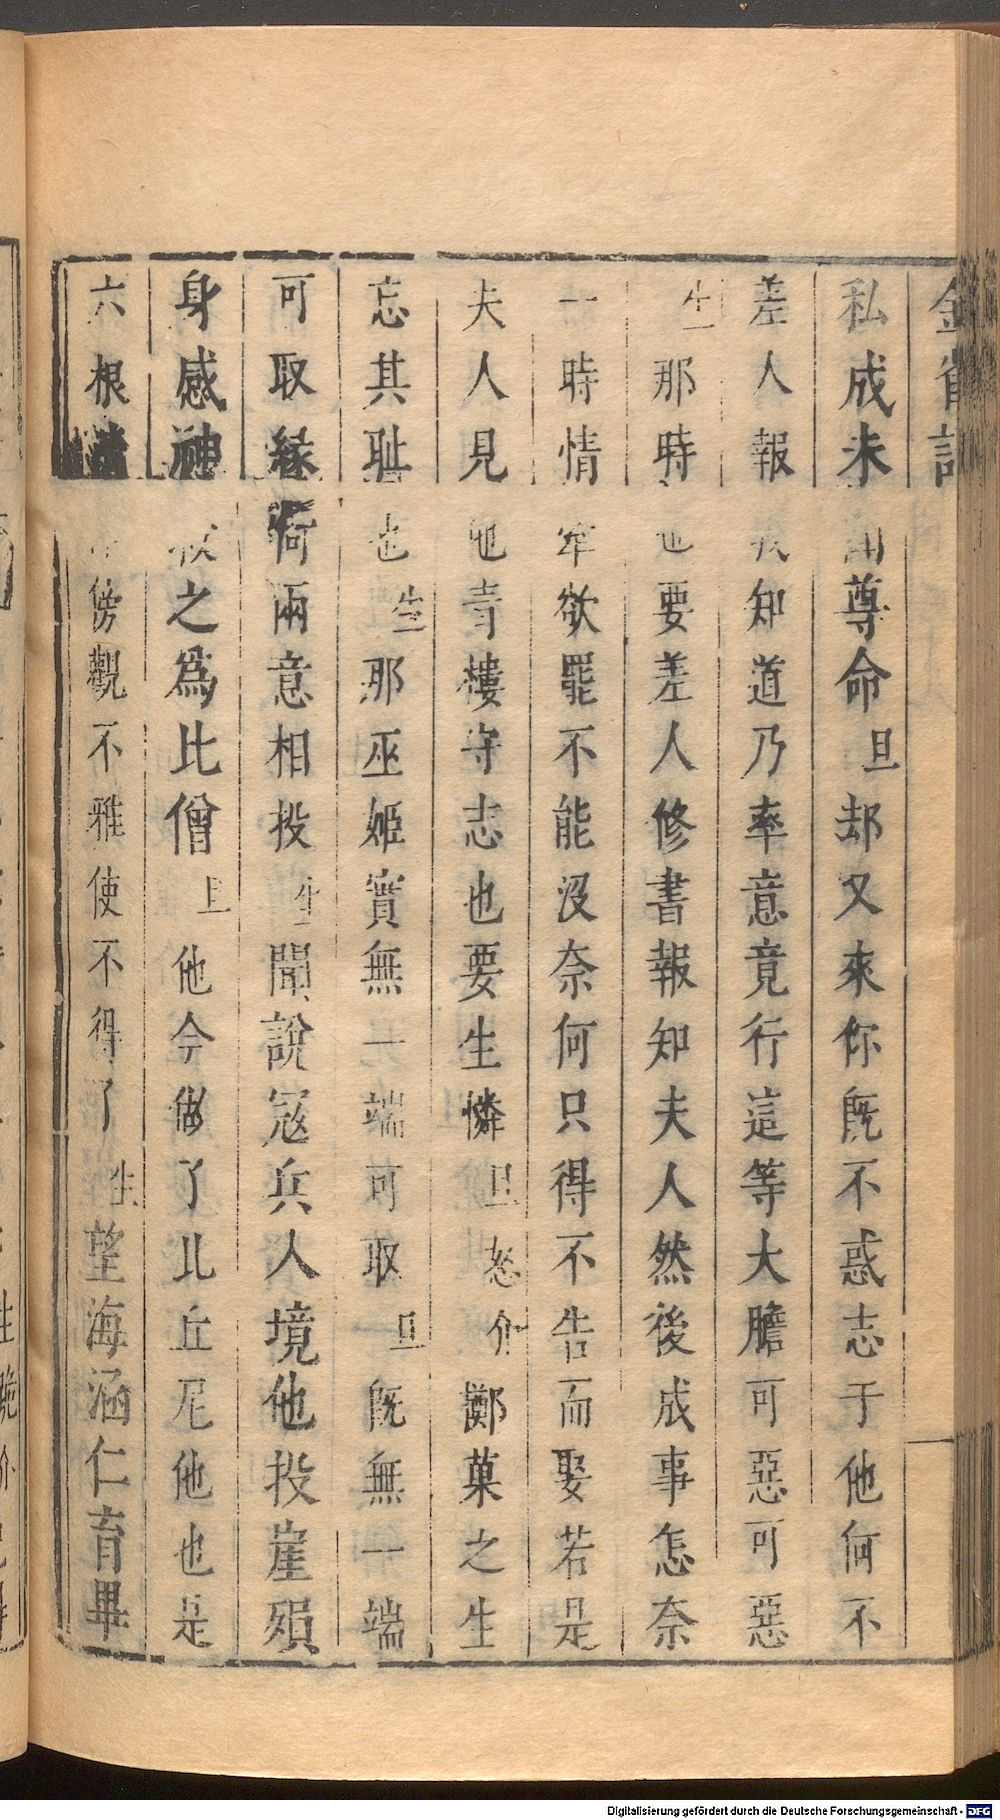 金雀記
私成未聞尊命旦却又來你既不惑志于他何不
差人報我知道乃率意竟行這等大膽可惡可惡
生那時也要差人修書報知夫人然後成事怎奈
一時情牽欲罷不能沒奈何只得不告而娶若是
夫人見他青樓守志也要生憐旦怒介擲菓之生
忘其耻也生那巫姬實無一端可取旦既無一端
可取緣何兩意相投生聞說寇兵人境他投崖殞
身感神救之為比僧旦他今做了比丘尼他也是
六根清傍觀不雅使不得了生望海涵仁育畢
Digitalisierung gefördert durch die Deutsche Forschungsgemeinschaft - DFG